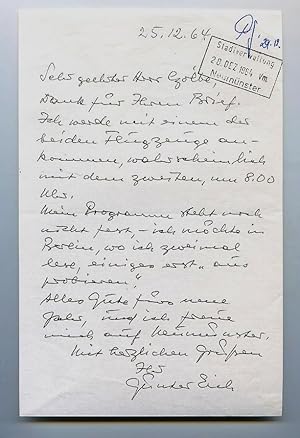 25.12.64
29.12.
Stadtverwaltung
DEZ. 1964 Vm.
Neumünster
Sehr geehrter Herr
Dank für Ihren Brief.
Ich werde mit einem der
beiden Flugzeuge an-
kommen, wahrscheinlich
mit dem zweiten, um 8.00
Uhr.
Mein Programm steht noch
nicht fest, – ich möchte in
Berlin, wo ich zweimal
lese, einiges erst "aus
probieren".
Alles Gute fürs neue
Jahr, und ich freue
mich auf Neumünster.
Mit herzlichen Grüßen
Ihr
Günter Eich